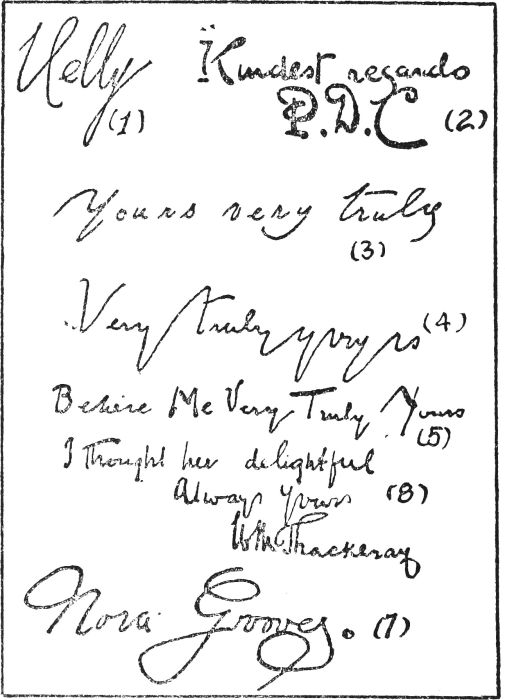 Nelly
(1)
Kindest regards
P.D.C (2)
Yours very truly
(3)
Very truly yours (4)
Believe Me Very Truly Yours
(5)
I thought her delightful
Always yours (8)
WM Thackeray
Nora Grooves. (7)